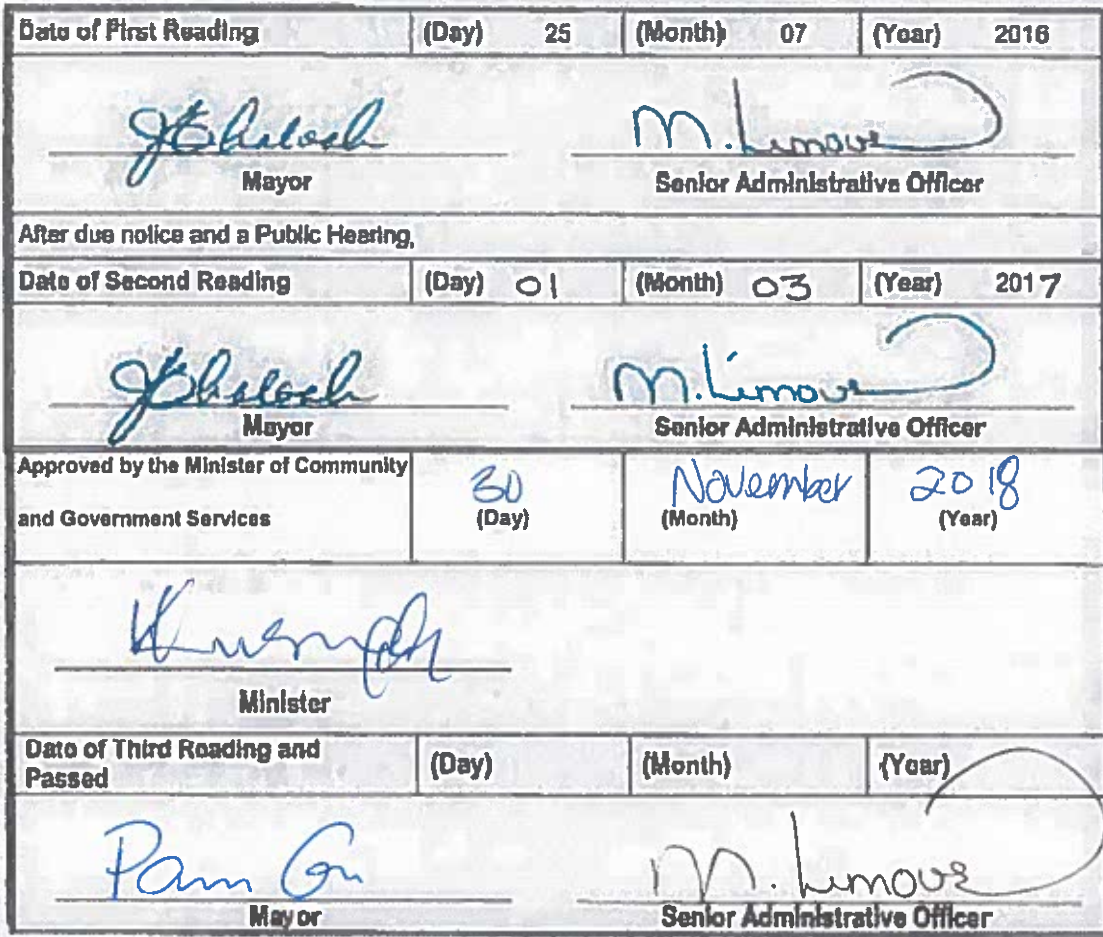 Date of First Reading (Day) 25 (Month) 07 (Year) 2016
M. Limous
Mayor Senior Administrative Officer
After due notice and a Public Hearing,
Date of Second Reading (Day) 01 (Month) 03 (Year) 2017
M. Limous
Mayor Senior Administrative Officer
Approved by the Minister of Community
and Government Services
30 November 2018
(Day) (Month) (Year)
Minister
Date of Third Reading and
Passed
(Day) (Month) (Year)
Pam M. Limous
Mayor Senior Administrative Officer